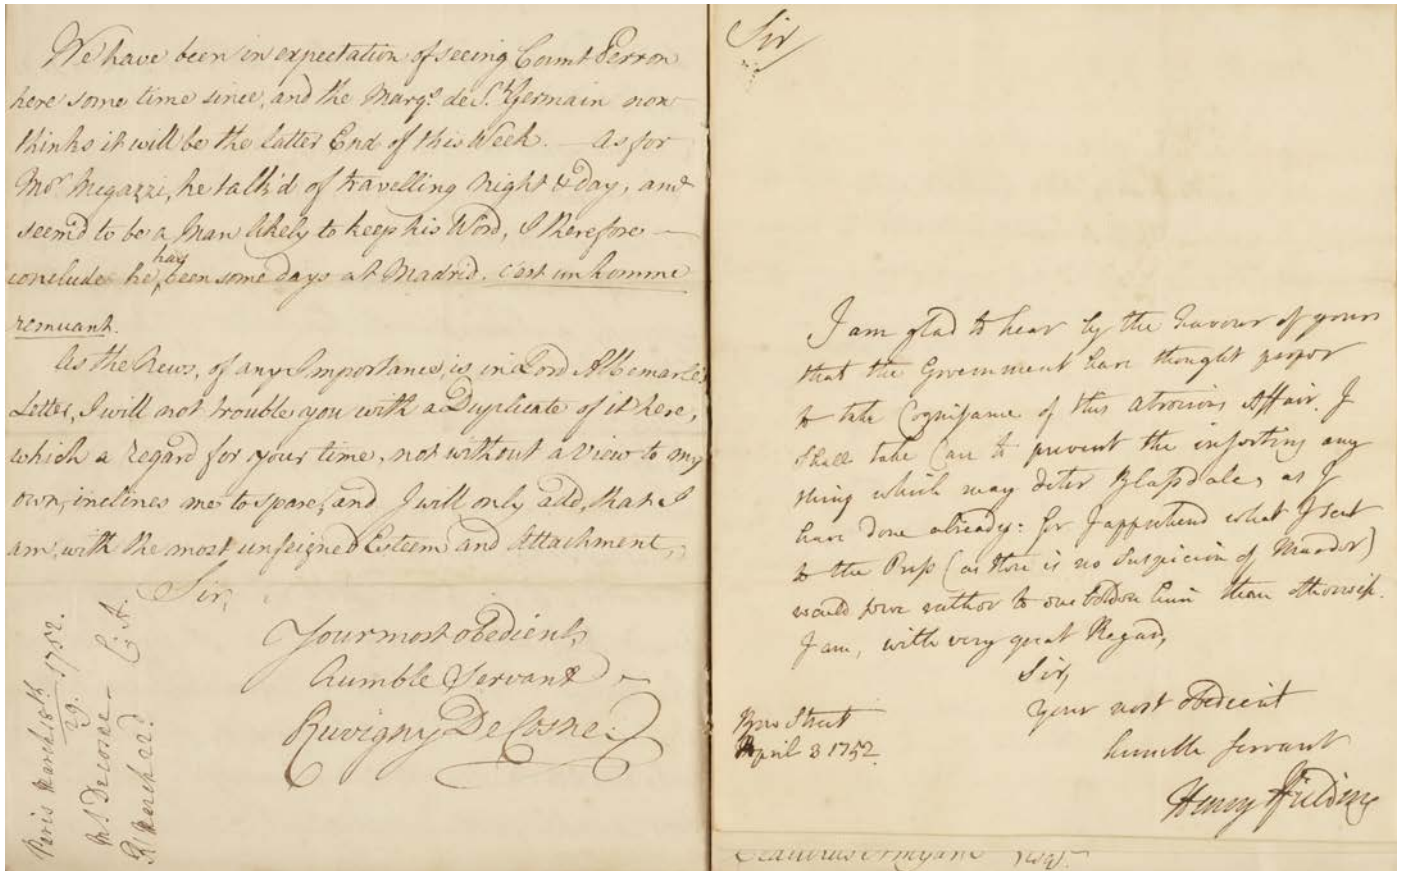 We have been in expectation of seeing Count Perron
here some time since, and the Marqs. de St. Germain now
thinks it will be the latter End of this Week. — As for
Mor. Megazzi, he talk'd of travelling Night & day, and
seem'd to be a Man likely to keep his Word, I therefore —
conclude he has been some days at Madrid. c'est un homme
remuant.
As the News, of any Importance, is in Lord Albemarle's
Letter, I will not trouble you with a Duplicate of it here,
which a regard for your time, not without a View to my
own, inclines me to spare, and I will only add, that I
am, with the most unfeigned Esteem and Attachment,
Sir,
Your most obedient,
humble Servant
Ruvigny De Cosne.
Paris March 18th/29. 1752.
Mr. Decosne
R/ March 22d.
Sir
I am glad to hear by the Favour of yours
that the Government have thought proper
to take Cognisance of this atrocious Affair. I
shall take Care to prevent the inserting any
thing which may deter Blapdale, as I
have done already: for I apprehend what I sent
to the Press (as there is no Suspicion of Murder)
would serve rather to embolden him than otherwise.
I am, with very great Regard,
Sir,
Your most obedient
humble servant
Henry Fielding
Bow Street
April 3 1752.
Esqr.